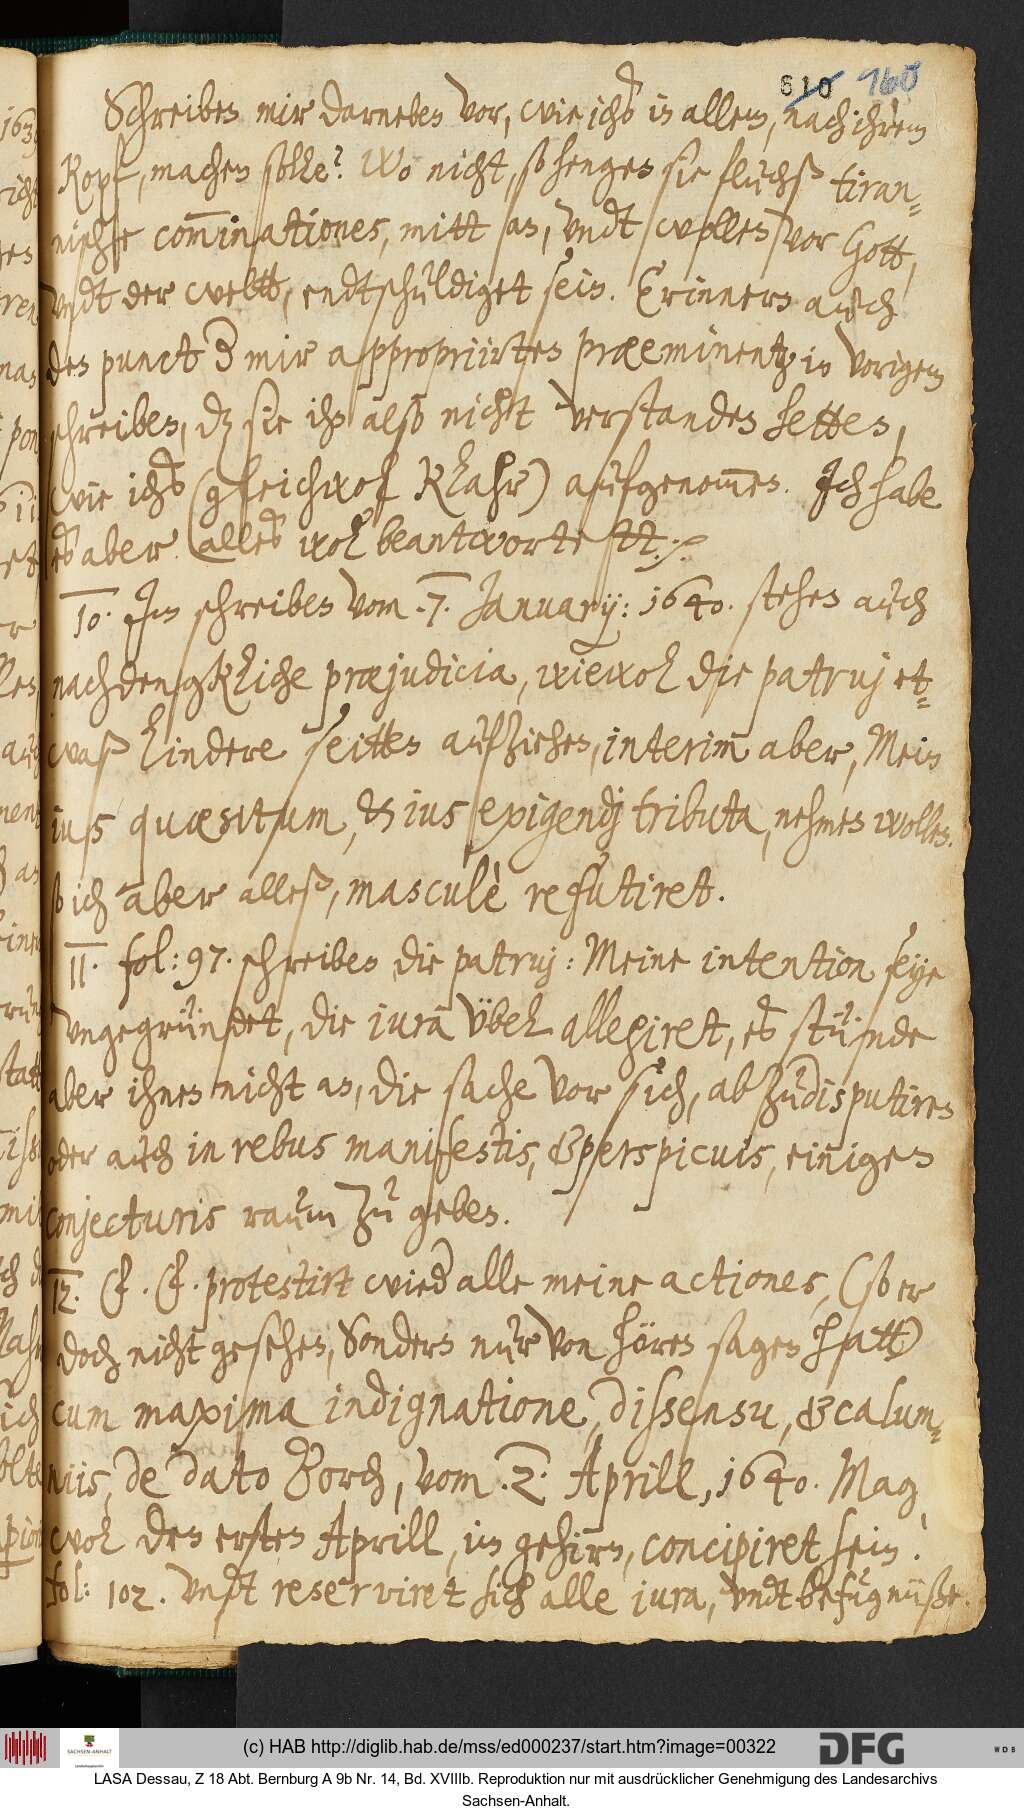 610 160
Schreiben mir darneben vor, wie ichs in allem, nach ihrem
Kopf, machen solle? Wo nicht, so hengen sie fluchß tiran-
nische com̅inationes, mitt an, vndt wollen vor Gott,
vndt der weltt, endtschuldiget sein. Erinnern auch
den punct mir appropriirten præeminentz in vorigem
schreiben, dz sie ihn also nicht verstanden hetten,
wie ichs (gleichwol klahr) aufgenom̅en. Ich habe
es aber alles wol beantwortett.
10. Im schreiben vom .7. January: 1640. stehen auch
nachdengkliche præjudicia, wiewol die patruj et-
waß lindere seitten aufziehen, interim aber, Mein
ius quæsitum, & ius exigendj tributa, nehmen wollen.
so ich aber alleß, masculè refutiret.
11. fol: 97. schreiben die patruj: Meine intention seye
vngegründet, die iura übel allegiret, es stünde
aber ihnen nicht an, die sache vor sich, ab zu disputiren
oder auch in rebus manifestis, & perspicuis, einigen
conjecturis raum zu geben.
12. protestirt wied alle meine actiones, (so er
doch nicht gesehen, sondern nur von hören sagen hatt)
cum maxima indignatione, dissensu, & calum-
niis, de dato Borch, vom .2. Aprill, 1640. Mag
wol den ersten Aprill, im gehirn, concipiret sein.
fol: 102. vndt reserviret sich alle jura, vndt befugnüße.
(c) HAB http://diglib.hab.de/mss/ed000237/start.htm?image=00322
SACHSEN-ANHALT
DFG
WDB
LASA Dessau, Z 18 Abt. Bernburg A 9b Nr. 14, Bd. XVIIIb. Reproduktion nur mit ausdrücklicher Genehmigung des Landesarchivs
Sachsen-Anhalt.